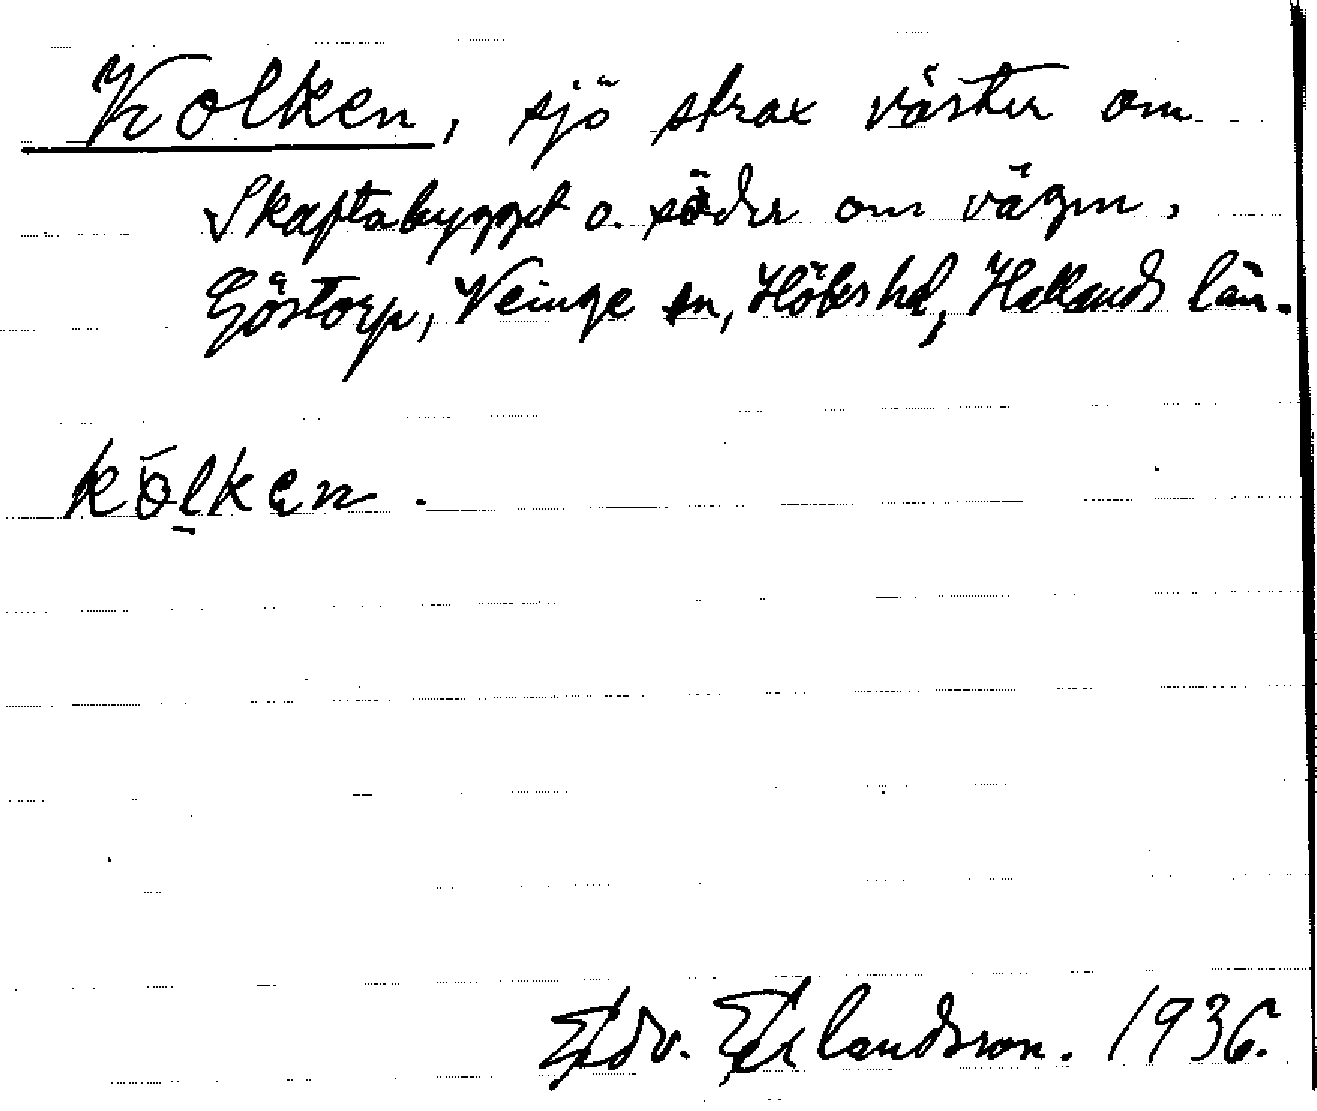 Kolken, sjö strax väster om
Skaftabygget o. söder om vägen.
Göstorp, Veinge sn, Höks hd, Hallands län.
kolken.
Edv. Erlandsson. 1936.